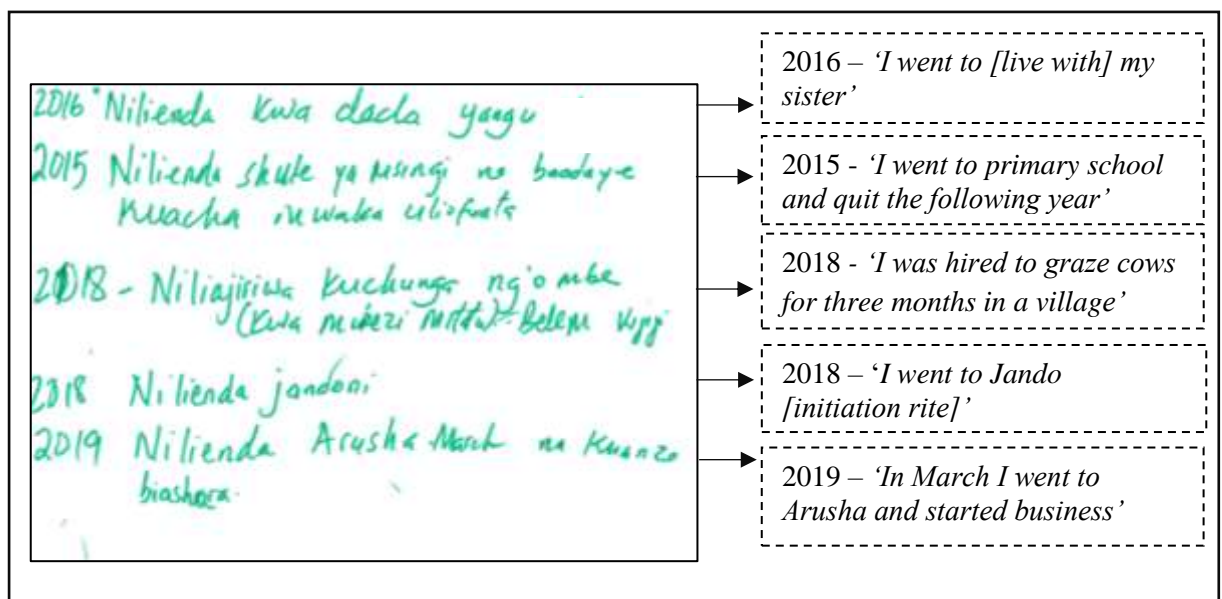 2016 Nilienda kwa dada yangu
2015 Nilienda shule ya msingi na baadaye
kuacha mwaka uliofuata
2018 - Niliajiriwa kuchunga ng'ombe
(kwa miezi mitatu)
2018 Nilienda jandoni
2019 Nilienda Arusha March na kuanza
biashara.
2016 – ‘I went to [live with] my
sister’
2015 - ‘I went to primary school
and quit the following year’
2018 - ‘I was hired to graze cows
for three months in a village’
2018 – ‘I went to Jando
[initiation rite]’
2019 – ‘In March I went to
Arusha and started business’